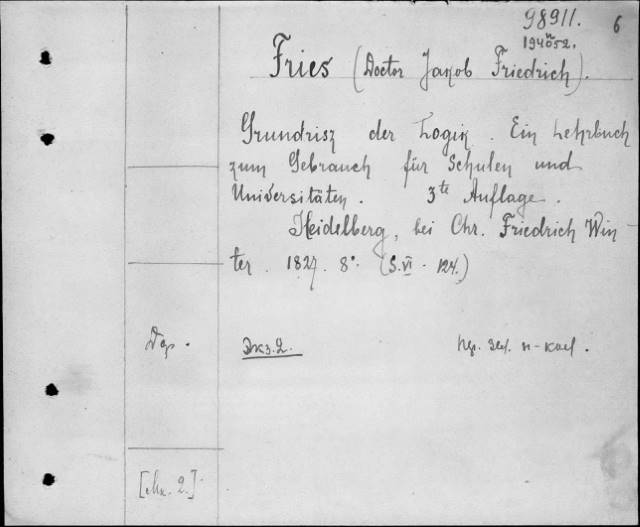 98911. 6
Fries (Doctor Jakob Friedrich).
Grundrisz der Logik. Ein Lehrbuch
zum Gebrauch für Schulen und
Universitäten. 3te Auflage.
Heidelberg, bei Chr. Friedrich Win-
ter. 1827. 8°. (S. VI - 124.)
Экз. 2.